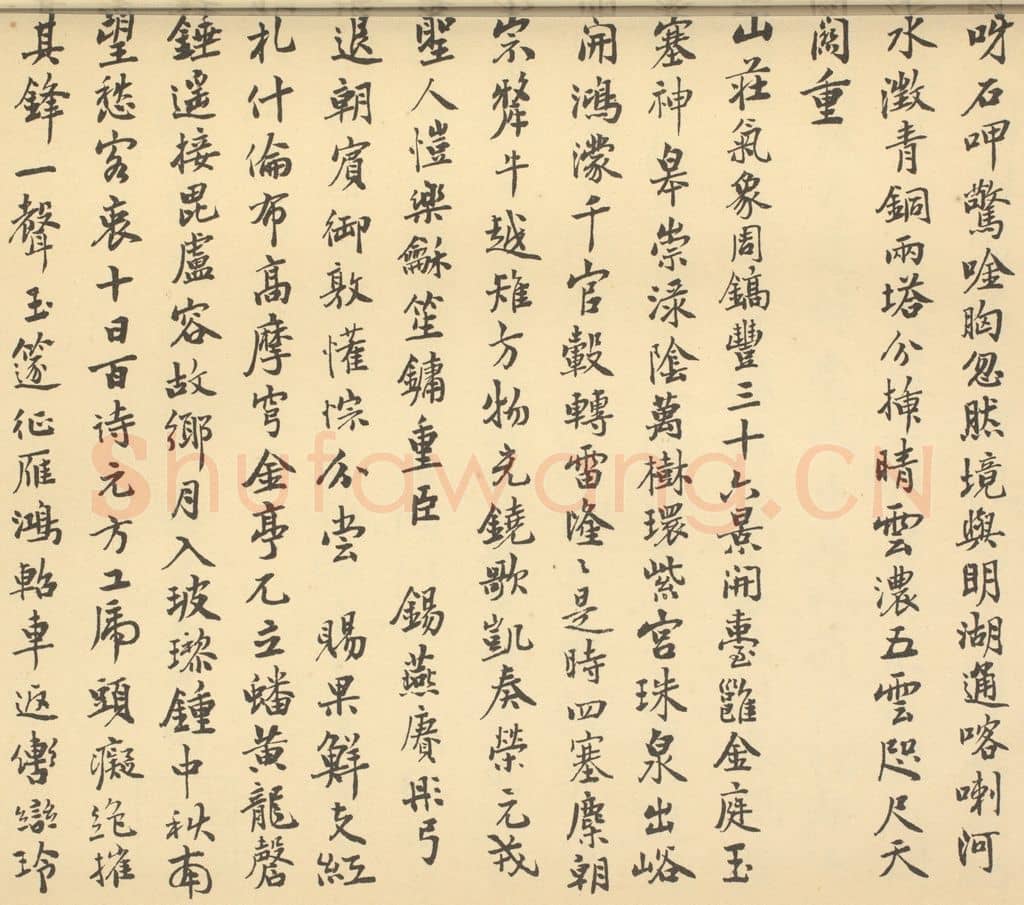 呀石呷驚唫胸忽然境與明湖通喀喇河
水澂青銅兩塔分插晴雲濃五雲咫尺天
閟重
山莊氣象周鎬豐三十六景開臺雝金庭玉
塞神皋崇淥陰萬樹環紫宮珠泉出峪
開鴻濛千官轂轉雷隆〻是時四塞麇朝
宗犛牛越雉方物充鐃歌凱奏榮元戎
聖人愷樂龢笙鏞重臣 錫燕賡彤弓
退朝賓御敦懽悰分嘗 賜果鮮支紅
札什倫布高摩穹金亭兀立蟠黃龍磬
錘遙接毘盧容故鄉月入玻瓈鍾中秋南
望愁客衷十日百詩元方工虎頭癡絕摧
其鋒一聲玉篴征雁鴻軺車返轡巒玲
Shufawang.CN